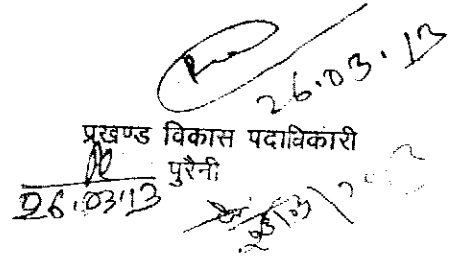 26.03.13
प्रखण्ड विकास पदाधिकारी
पुरैनी
26.03.13